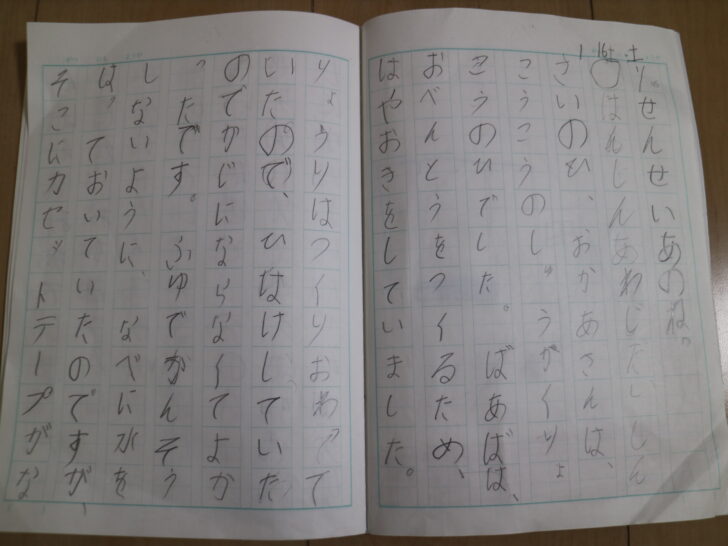 せんせいあのね。
○はんしんあわじだいしん
さいのひ、おかあさんは、
こうこうのしゅうがくりょ
こうのひでした。ばあばは、
おべんとうをつくるため、
はやおきをしていました。
りょうりはつくりおわって
いたので、ひはけしていた
のでかじにならなくてよか
ったです。ふゆでかんそう
しないように、なべに水を
はっておいていたのですが
そこにカセットテープがな